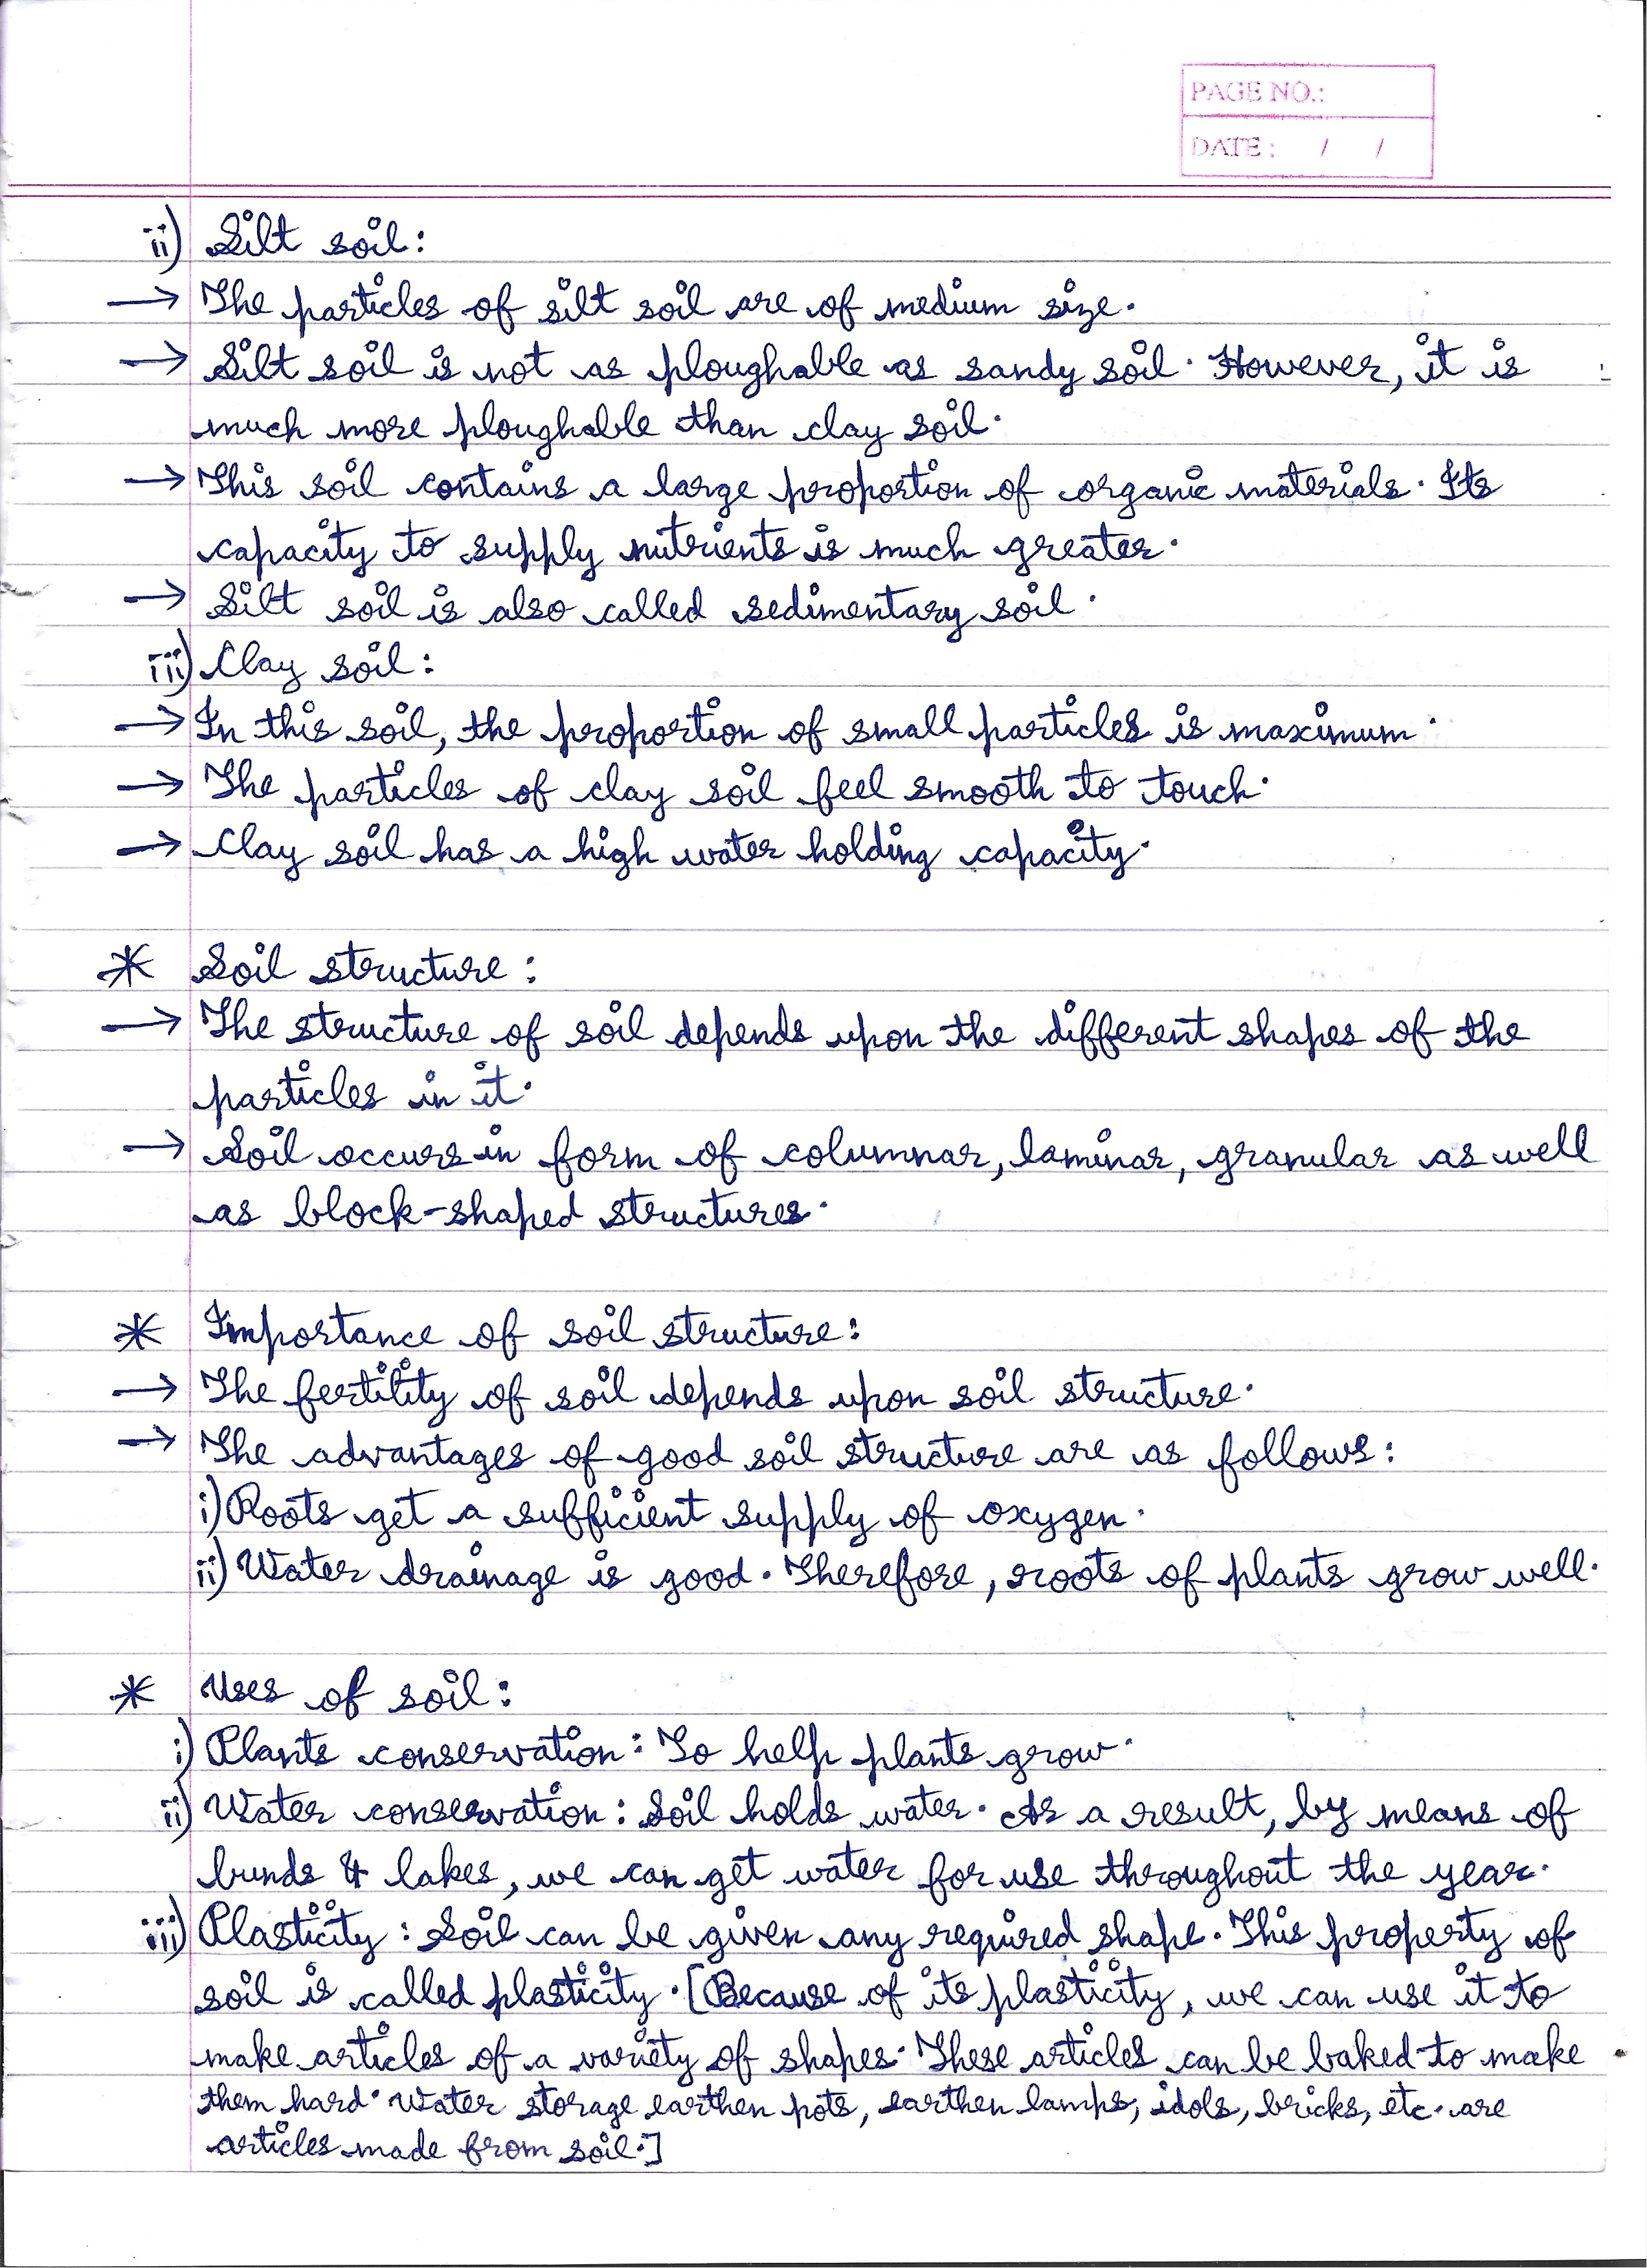 PAGE NO.:
DATE : / /
ii) Silt soil:
→ The particles of silt soil are of medium size.
→ Silt soil is not as ploughable as sandy soil. However, it is
much more ploughable than clay soil.
→ This soil contains a large proportion of organic materials. Its
capacity to supply nutrients is much greater.
→ Silt soil is also called sedimentary soil.
iii) Clay soil:
→ In this soil, the proportion of small particles is maximum.
→ The particles of clay soil feel smooth to touch.
→ Clay soil has a high water holding capacity.
* Soil structure:
→ The structure of soil depends upon the different shapes of the
particles in it.
→ Soil occurs in form of columnar, laminar, granular as well
as block-shaped structures.
* Importance of soil structure:
→ The fertility of soil depends upon soil structure.
→ The advantages of good soil structure are as follows:
i) Roots get a sufficient supply of oxygen.
ii) Water drainage is good. Therefore, roots of plants grow well.
* Uses of soil:
i) Plants conservation: To help plants grow.
ii) Water conservation: Soil holds water. As a result, by means of
bunds & lakes, we can get water for use throughout the year.
iii) Plasticity: Soil can be given any required shape. This property of
soil is called plasticity. [Because of its plasticity, we can use it to
make articles of a variety of shapes. These articles can be baked to make
them hard. Water storage earthen pots, earthen lamps, idols, bricks, etc. are
articles made from soil.]